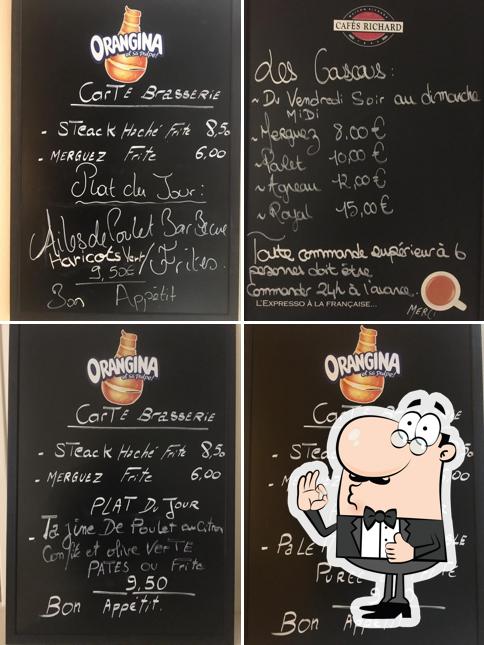 ORANGINA
et sa pulpe!
CarTE BrassERIE
- STEack Haché Frite 8,50
- MERGUEZ Frite 6,00
Plat du Jour:
Ailes de Poulet Bar Becue
Haricots Vert/Frites.
9,50€
Bon Appétit
MAISON RICHARD
CAFÉS RICHARD
Les Couscous:
~ Du Vendredi Soir au dimanche
MiDi
~ Merguez 8,00€
~ Poulet 10,00€
~ Agneau 12,00€
~ Royal 15,00€
Toute commande supérieur à 6
personnes doit être
Commander 24h à l'avance.
L'EXPRESSO À LA FRANÇAISE...
MERCI
ORANGINA
et sa pulpe!
CarTE BrassERIE
- STEack Haché Frite 8,50
- MERGUEZ Frite 6,00
PLAT Du JOUR
- Tajine De Poulet au Citron
Confit et olive VerTE
PATES ou Frite
9,50
Bon Appétit.
ORANGINA
et sa pulpe!
Bon